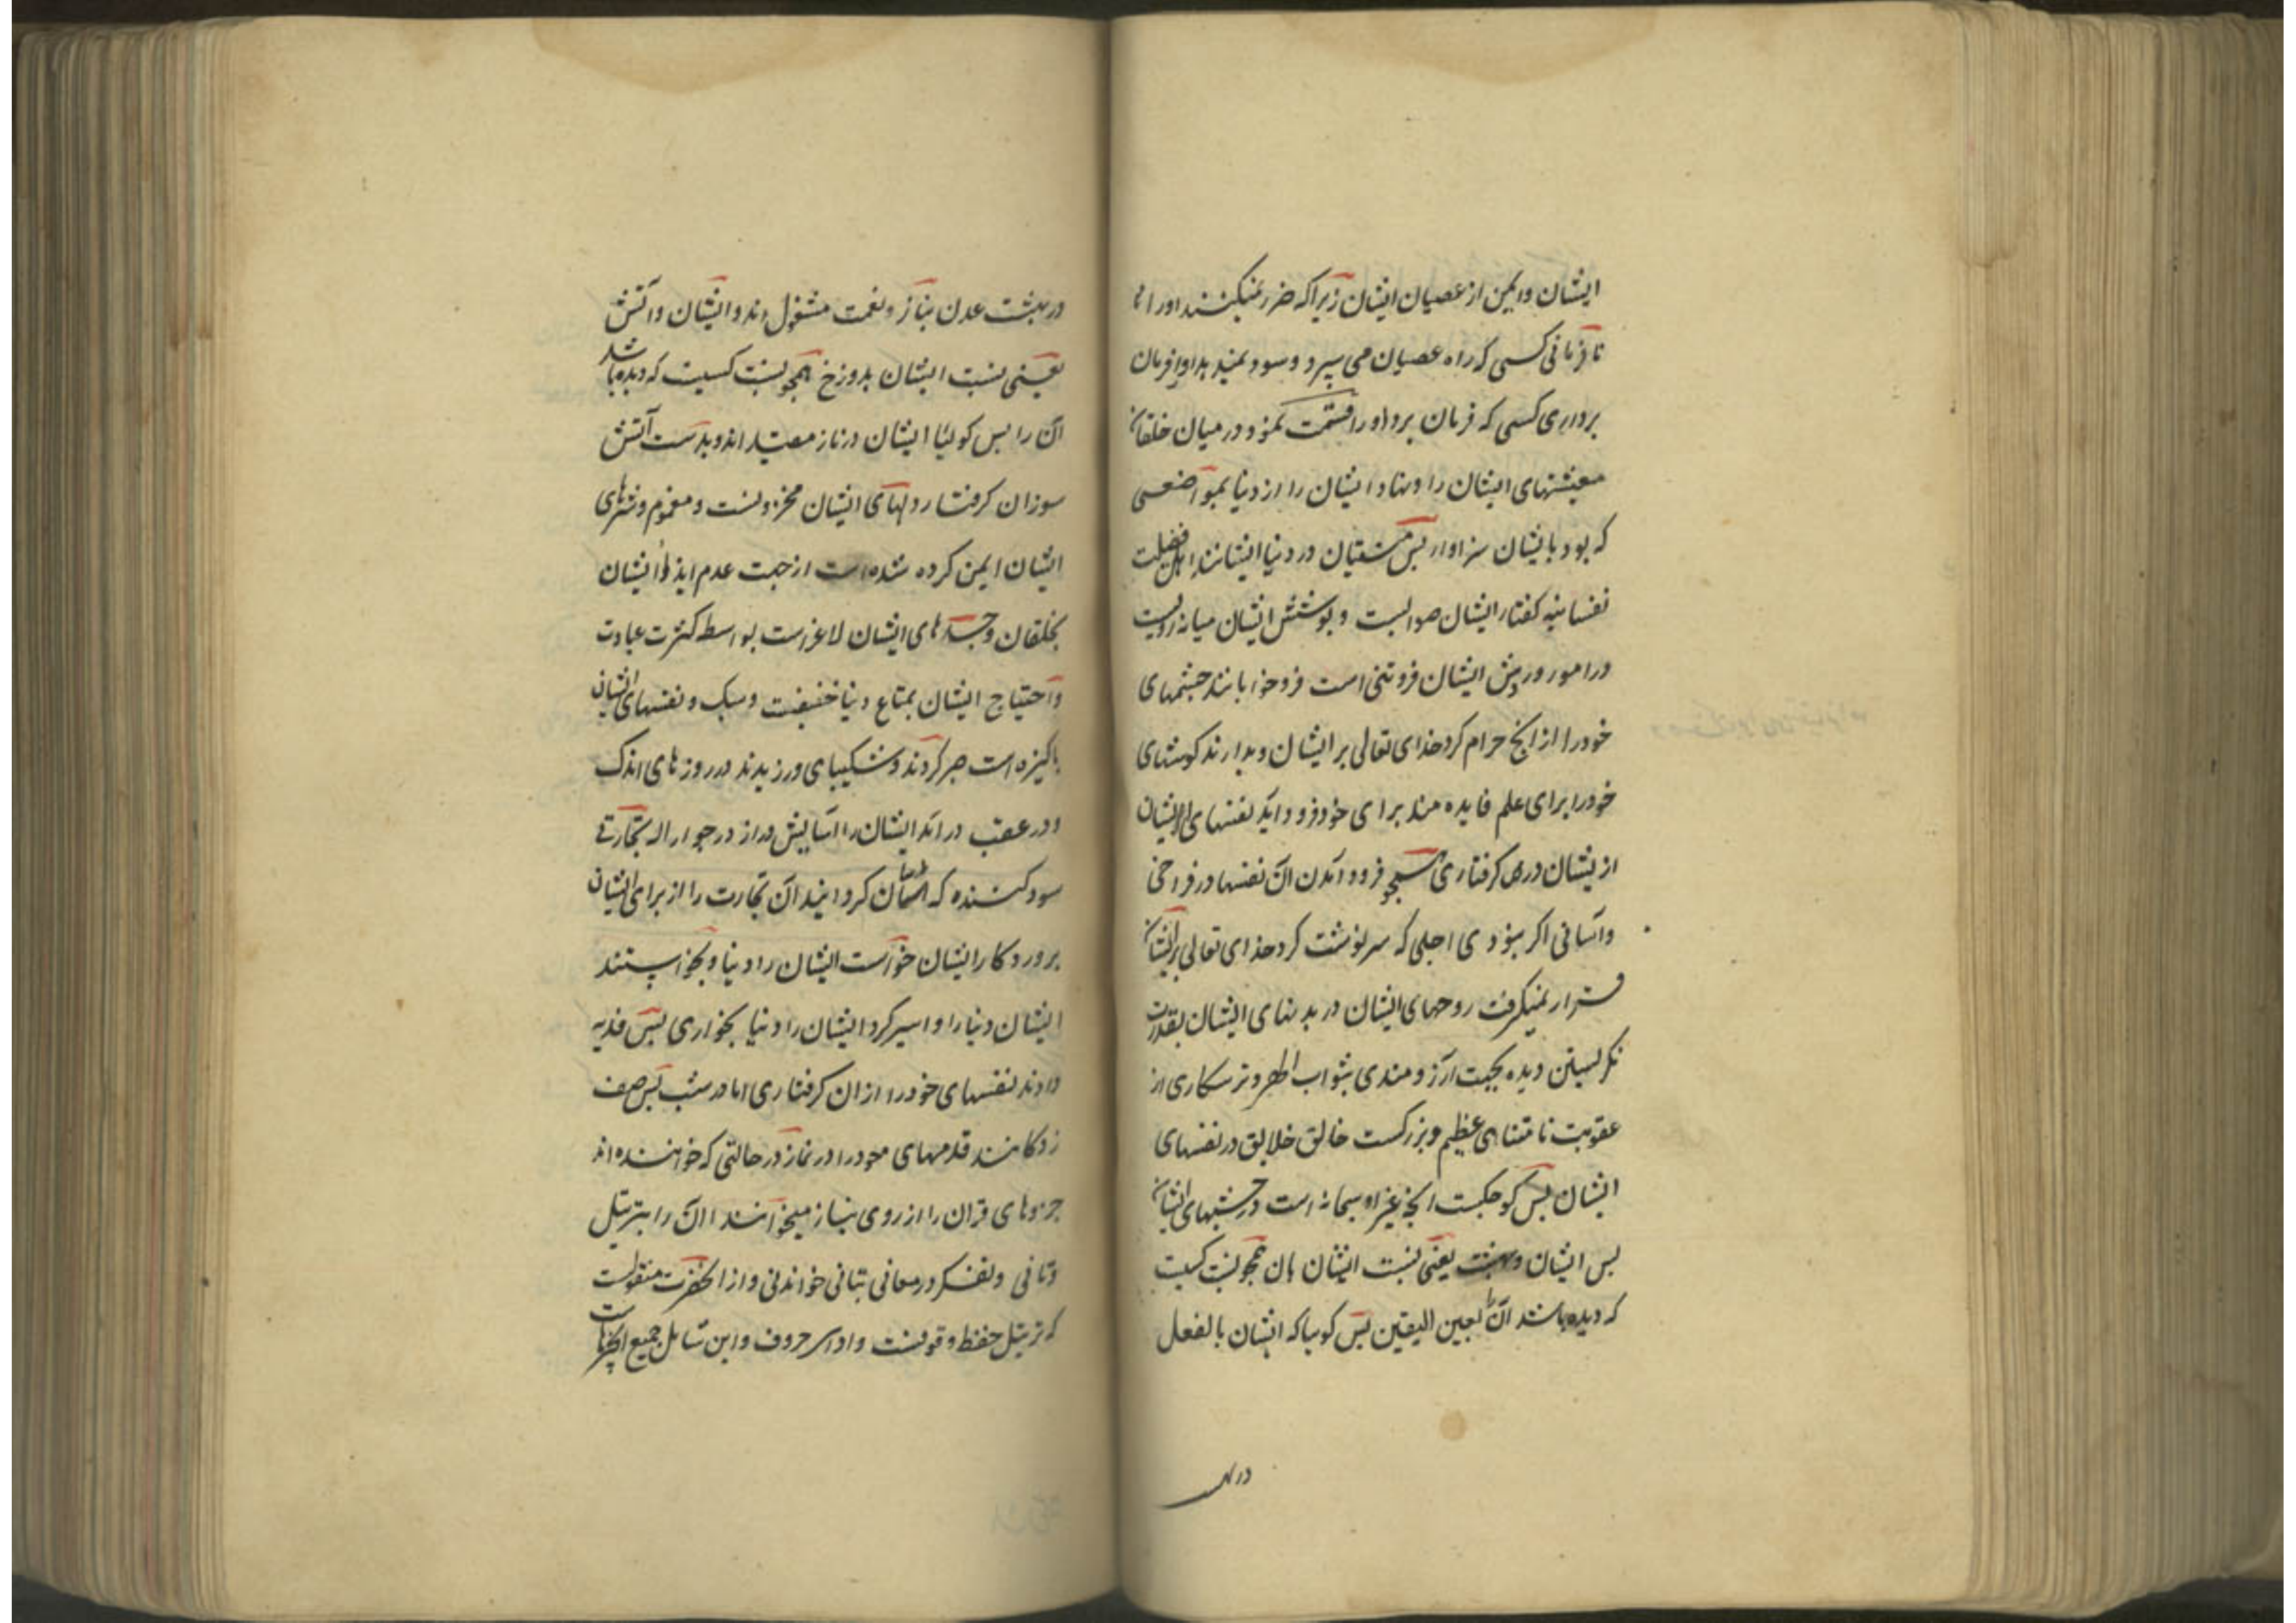 ایشان و ایمن از عصیان ایشان زیرا که ضرر نمیکنند اورا
نافرمانی کسی که راه عصیان می سپرد و سود نمید بداو را فرمان
برداری کسی که فرمان برد اورا قسمت نمود در میان خلقان
معیشتهای ایشان را و نهاد ایشان را از دنیا بمواضعی
که بود بایشان سزاوار پس متقیان در دنیا ایشانند اهل فضیلت
نفسانیه کفتار ایشان صوابست و پوشش ایشان میانه رویست
در امور و روش ایشان فروتنی است فروخوابانند چشمهای
خود را از انچ حرام کرد خدای تعالی بر ایشان و بدارند کوشهای
خود را برای علم فایده مند برای خود فرود آید نفسهای ایشان
از یشان در کرفتاری همچو فرود آمدن آن نفسها در فراخی
و آسانی اکر نبودی اجلی که سرنوشت کرد خدای تعالی بر ایشان
قرار نمیکرفت روحهای ایشان در بدنهای ایشان بقدر
نکرلیستن دیده بجهت آرزومندی بثواب اطهر و ترسکاری از
عقوبت نامتناهی عظیم و بزرکست خالق خلایق در نفسهای
ایشان پس کوچکست انچ غیر او سبحانه است در چشمهای ایشان
پس ایشان و بهشت یعنی نسبت ایشان بان همچو نسبت کسیت
که دیده باشد آن را بعین الیقین پس کویا که ایشان بالفعل
در بهشت
در بهشت عدن بناز و نعمت مشغول اند و ایشان و آتش
یعنی نسبت ایشان بدوزخ همچو نسبت کسیت که دیده باشد
آن را پس کوئیا ایشان در نار معتید اند و بدست آتش
سوزان کرفتار دلهای ایشان محزونست و مغموم و شرهای
ایشان ایمن کرده شده است از جهت عدم ایذاء ایشان
بخلقان و جسدهای ایشان لاغر است بواسطه کثرت عبادت
و احتیاج ایشان بمتاع دنیا خفیفست و سبک و نفسهای ایشان
پاکیزه است صبر کردند و شکیبای ورزیدند در روزهای اندک
و در عقب در آمد ایشان را آسایش دراز در جوار اله تجارتی
سود کننده که آسان کردانید آن تجارت را از برای ایشان
پروردکار ایشان خواست ایشان را دنیا و نخواستند
ایشان دنیا را و اسیر کرد ایشان را دنیا بخواری پس فدیه
دادند نفسهای خود را از ان کرفتاری اما در شب پس صف
زدکانند قدمهای خود را در نماز در حالتی که خواننده اند
جزوهای قران را از روی نیاز میخوانند آن را بترتیل
و تانی و تفکر در معانی بتانی خواندنی و از انحضرت منقولست
که ترتیل حفظ وقوفست و ادای حروف و این شامل جمیع